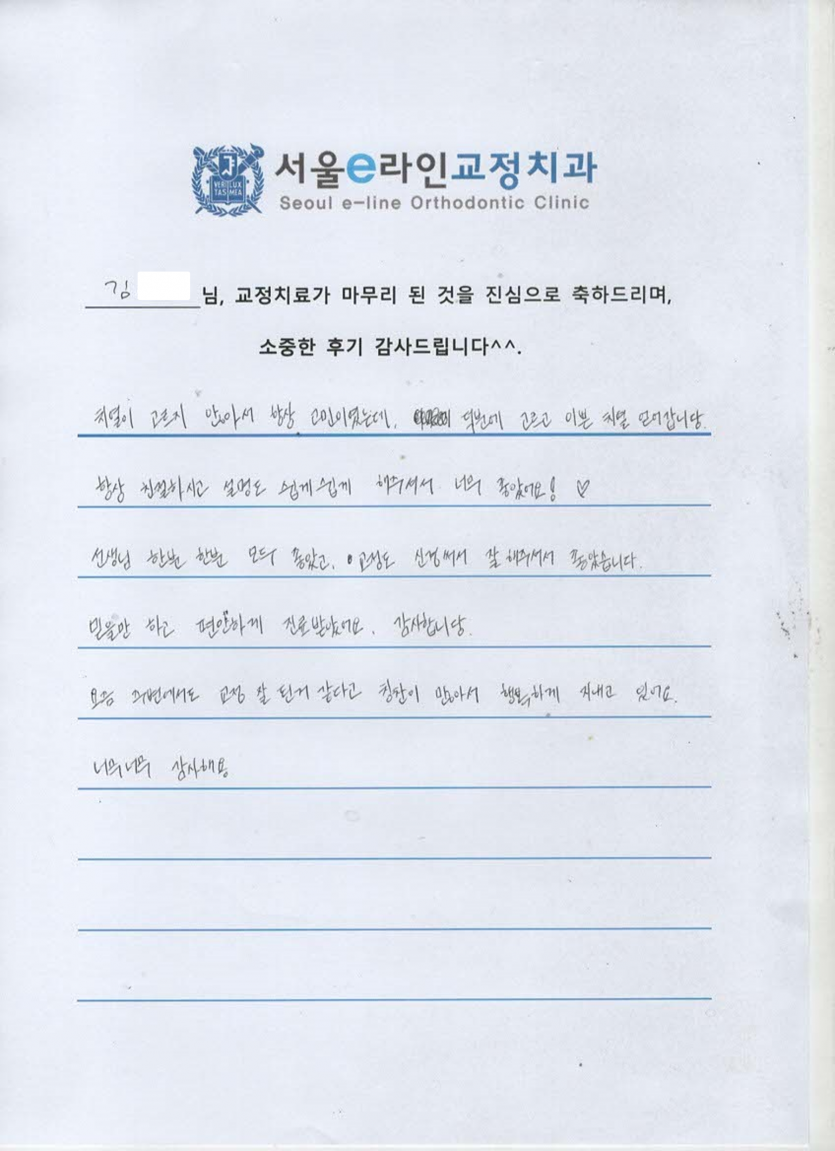 VERI LUX TAS MEA
서울e라인교정치과
Seoul e-line Orthodontic Clinic
김 님, 교정치료가 마무리 된 것을 진심으로 축하드리며,
소중한 후기 감사드립니다^^.
치열이 고르지 않아서 항상 고민이였는데, 덕분에 고르고 이쁜 치열 얻어갑니다.
항상 친절하시고 설명도 쉽게쉽게 해주셔서 너무 좋았어요! ♡
선생님 한분 한분 모두 좋았고, 교정도 신경써서 잘 해주셔서 좋았습니다.
믿을만 하고 편안하게 진료받았어요. 감사합니다.
요즘 주변에서도 교정 잘 된거 같다고 칭찬이 많아서 행복하게 지내고 있어요.
너무너무 감사해요